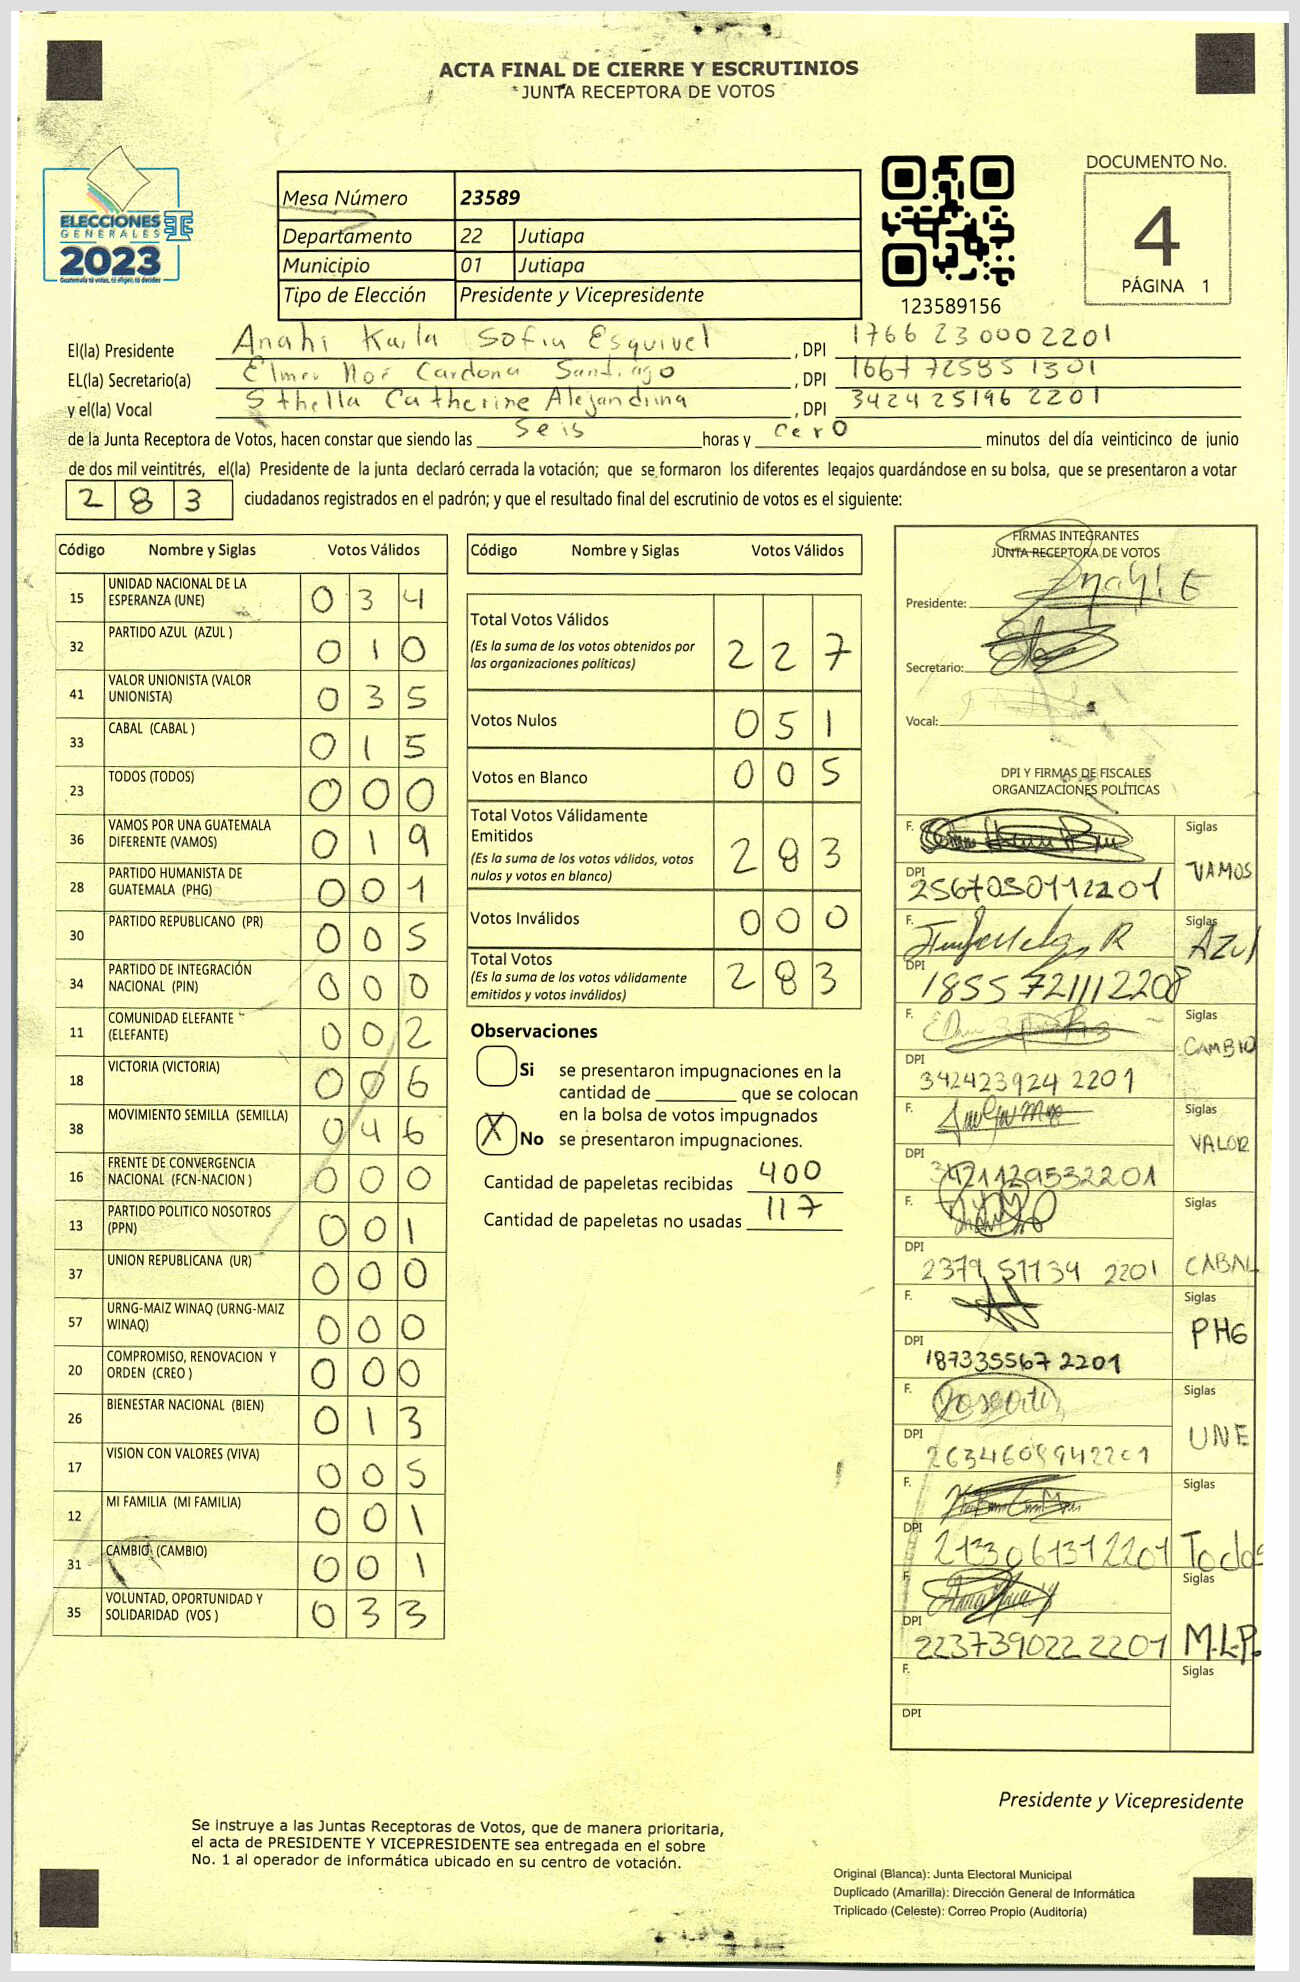 ACTA FINAL DE CIERRE Y ESCRUTINIOS
JUNTA RECEPTORA DE VOTOS
ELECCIONES
GENERALES
2023
Guatemala tú votas, tú eliges, tú decides
Mesa Número 23589
Departamento 22 Jutiapa
Municipio 01 Jutiapa
Tipo de Elección Presidente y Vicepresidente
123589156
DOCUMENTO No.
4
PÁGINA 1
El(la) Presidente Anahi Karla Sofia Esquivel , DPI 1766 23000 2201
EL(la) Secretario(a) Elmer Noé Cardona Santiago , DPI 1667 72585 1301
y el(la) Vocal Sthella Catherine Alejandrina , DPI 3424 25196 2201
de la Junta Receptora de Votos, hacen constar que siendo las seis horas y cero minutos del día veinticinco de junio
de dos mil veintitrés, el(la) Presidente de la junta declaró cerrada la votación; que se formaron los diferentes legajos guardándose en su bolsa, que se presentaron a votar
283 ciudadanos registrados en el padrón; y que el resultado final del escrutinio de votos es el siguiente:
Código Nombre y Siglas Votos Válidos
15 UNIDAD NACIONAL DE LA ESPERANZA (UNE) 034
32 PARTIDO AZUL (AZUL ) 010
41 VALOR UNIONISTA (VALOR UNIONISTA) 035
33 CABAL (CABAL ) 015
23 TODOS (TODOS) 000
36 VAMOS POR UNA GUATEMALA DIFERENTE (VAMOS) 019
28 PARTIDO HUMANISTA DE GUATEMALA (PHG) 001
30 PARTIDO REPUBLICANO (PR) 005
34 PARTIDO DE INTEGRACIÓN NACIONAL (PIN) 000
11 COMUNIDAD ELEFANTE (ELEFANTE) 002
18 VICTORIA (VICTORIA) 006
38 MOVIMIENTO SEMILLA (SEMILLA) 046
16 FRENTE DE CONVERGENCIA NACIONAL (FCN-NACION ) 000
13 PARTIDO POLITICO NOSOTROS (PPN) 001
37 UNION REPUBLICANA (UR) 000
57 URNG-MAIZ WINAQ (URNG-MAIZ WINAQ) 000
20 COMPROMISO, RENOVACION Y ORDEN (CREO ) 000
26 BIENESTAR NACIONAL (BIEN) 013
17 VISION CON VALORES (VIVA) 005
12 MI FAMILIA (MI FAMILIA) 001
31 CAMBIO (CAMBIO) 001
35 VOLUNTAD, OPORTUNIDAD Y SOLIDARIDAD (VOS ) 033
Código Nombre y Siglas Votos Válidos
Total Votos Válidos 227
(Es la suma de los votos obtenidos por
las organizaciones políticas)
Votos Nulos 051
Votos en Blanco 005
Total Votos Válidamente
Emitidos 283
(Es la suma de los votos válidos, votos
nulos y votos en blanco)
Votos Inválidos 000
Total Votos 283
(Es la suma de los votos válidamente
emitidos y votos inválidos)
Observaciones
Si se presentaron impugnaciones en la
cantidad de ________ que se colocan
en la bolsa de votos impugnados
X No se presentaron impugnaciones.
Cantidad de papeletas recibidas 400
Cantidad de papeletas no usadas 117
FIRMAS INTEGRANTES
JUNTA RECEPTORA DE VOTOS
Presidente: Anahí E
Secretario:
Vocal:
DPI Y FIRMAS DE FISCALES
ORGANIZACIONES POLÍTICAS
F. Siglas
DPI 2567050112201 VAMOS
F. Siglas
DPI 1855 72111 2208 AZUl
F. Siglas
DPI 342423924 2201 CAMBIO
F. Siglas
DPI 3421129532201 VALOR
F. Siglas
DPI 2379 51134 2201 CABAL
F. Siglas
DPI 187335567 2201 PHG
F. Siglas
DPI 2634608942201 UNE
F. Siglas
DPI 2133061312201 Todos
F. Siglas
DPI 223739022 2201 M.L.P.
F. Siglas
DPI
Presidente y Vicepresidente
Se instruye a las Juntas Receptoras de Votos, que de manera prioritaria,
el acta de PRESIDENTE Y VICEPRESIDENTE sea entregada en el sobre
No. 1 al operador de informática ubicado en su centro de votación.
Original (Blanca): Junta Electoral Municipal
Duplicado (Amarilla): Dirección General de Informática
Triplicado (Celeste): Correo Propio (Auditoría)